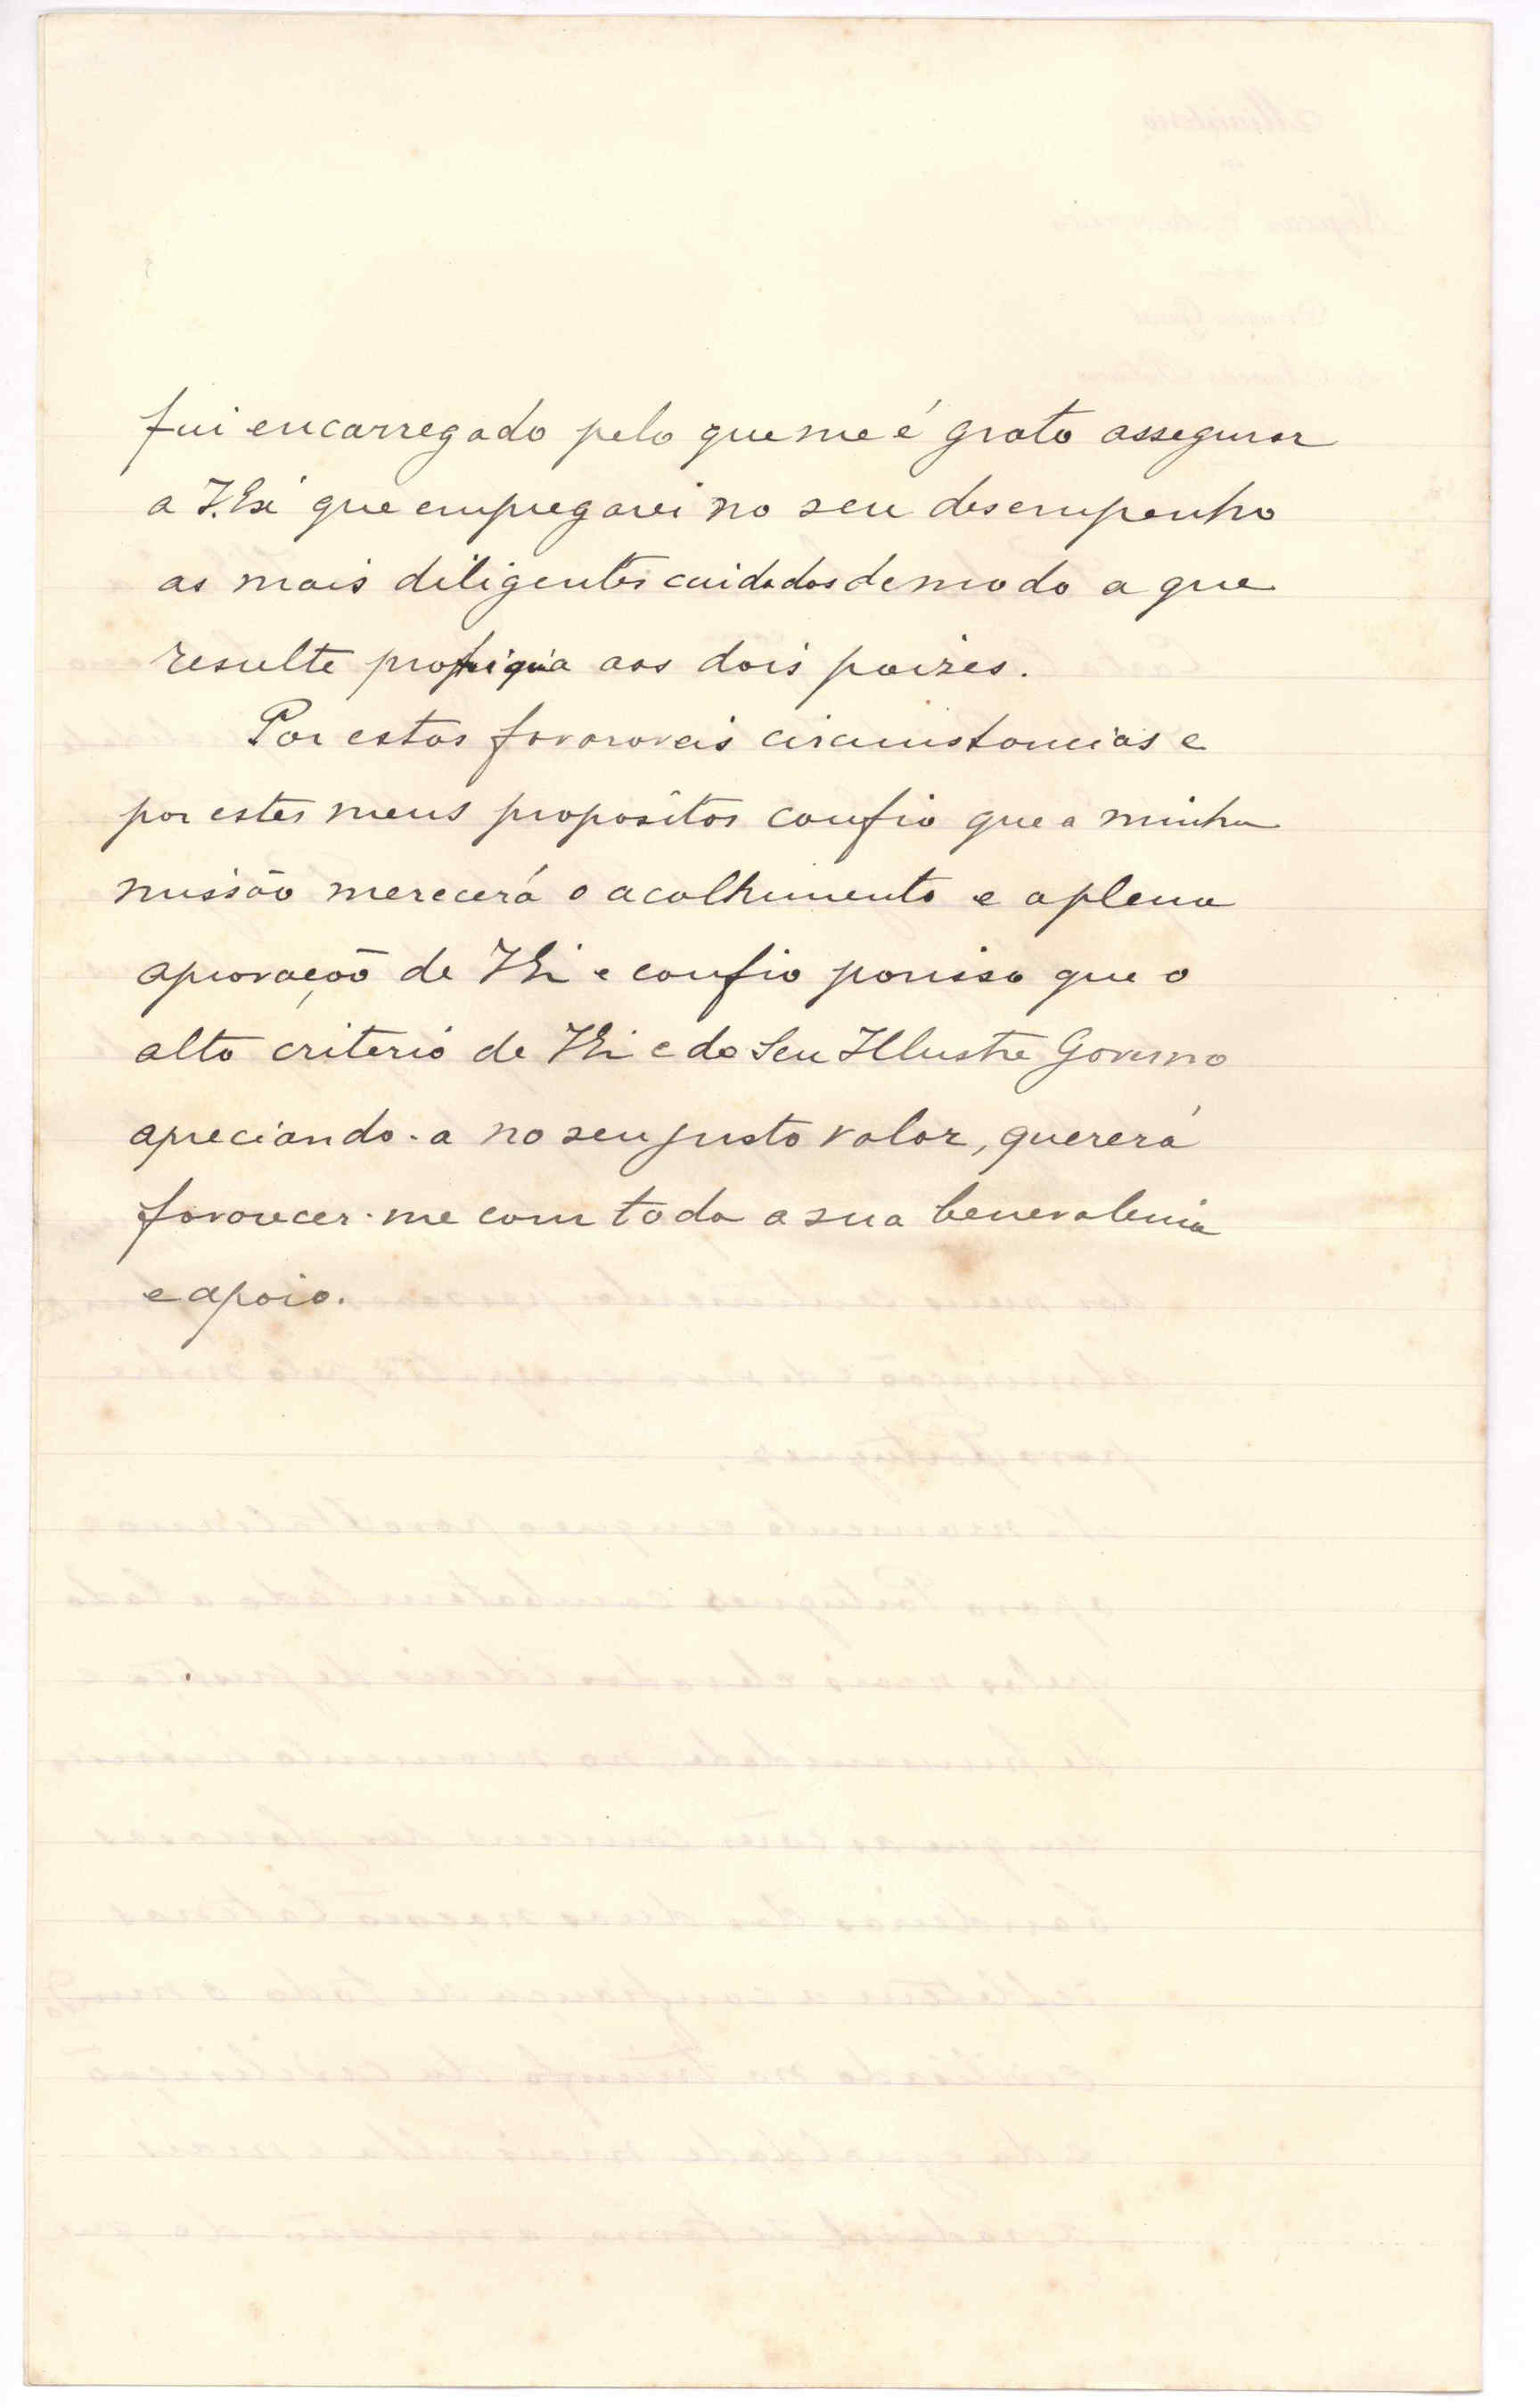 fui encarregado pelo que me é grato assegurar
a V. Exª que empregarei no seu desempenho
as mais diligentes cuidados de modo a que
resulte aos dois paizes.
Por estas favoraveis circunstancias e
por estes meus propositos confio que a minha
missão merecerá o acolhimento e a plena
aprovação de V Exª e confio porisso que o
alto criterio de V Exª e do Seu Illustre Governo
apreciando-a no seu justo valor, quererá
favorecer-me com toda a sua benevolencia
e apoio.